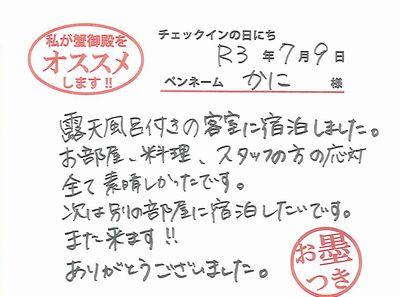 私が蟹御殿を
オススメ
します!!
チェックインの日にち
R3 年 7 月 9 日
ペンネーム かに 様
露天風呂付きの客室に宿泊しました。
お部屋、料理、スタッフの方の応対
全て素晴しかったです。
次は別の部屋に宿泊したいです。
また来ます!!
ありがとうございました。
お墨
つき